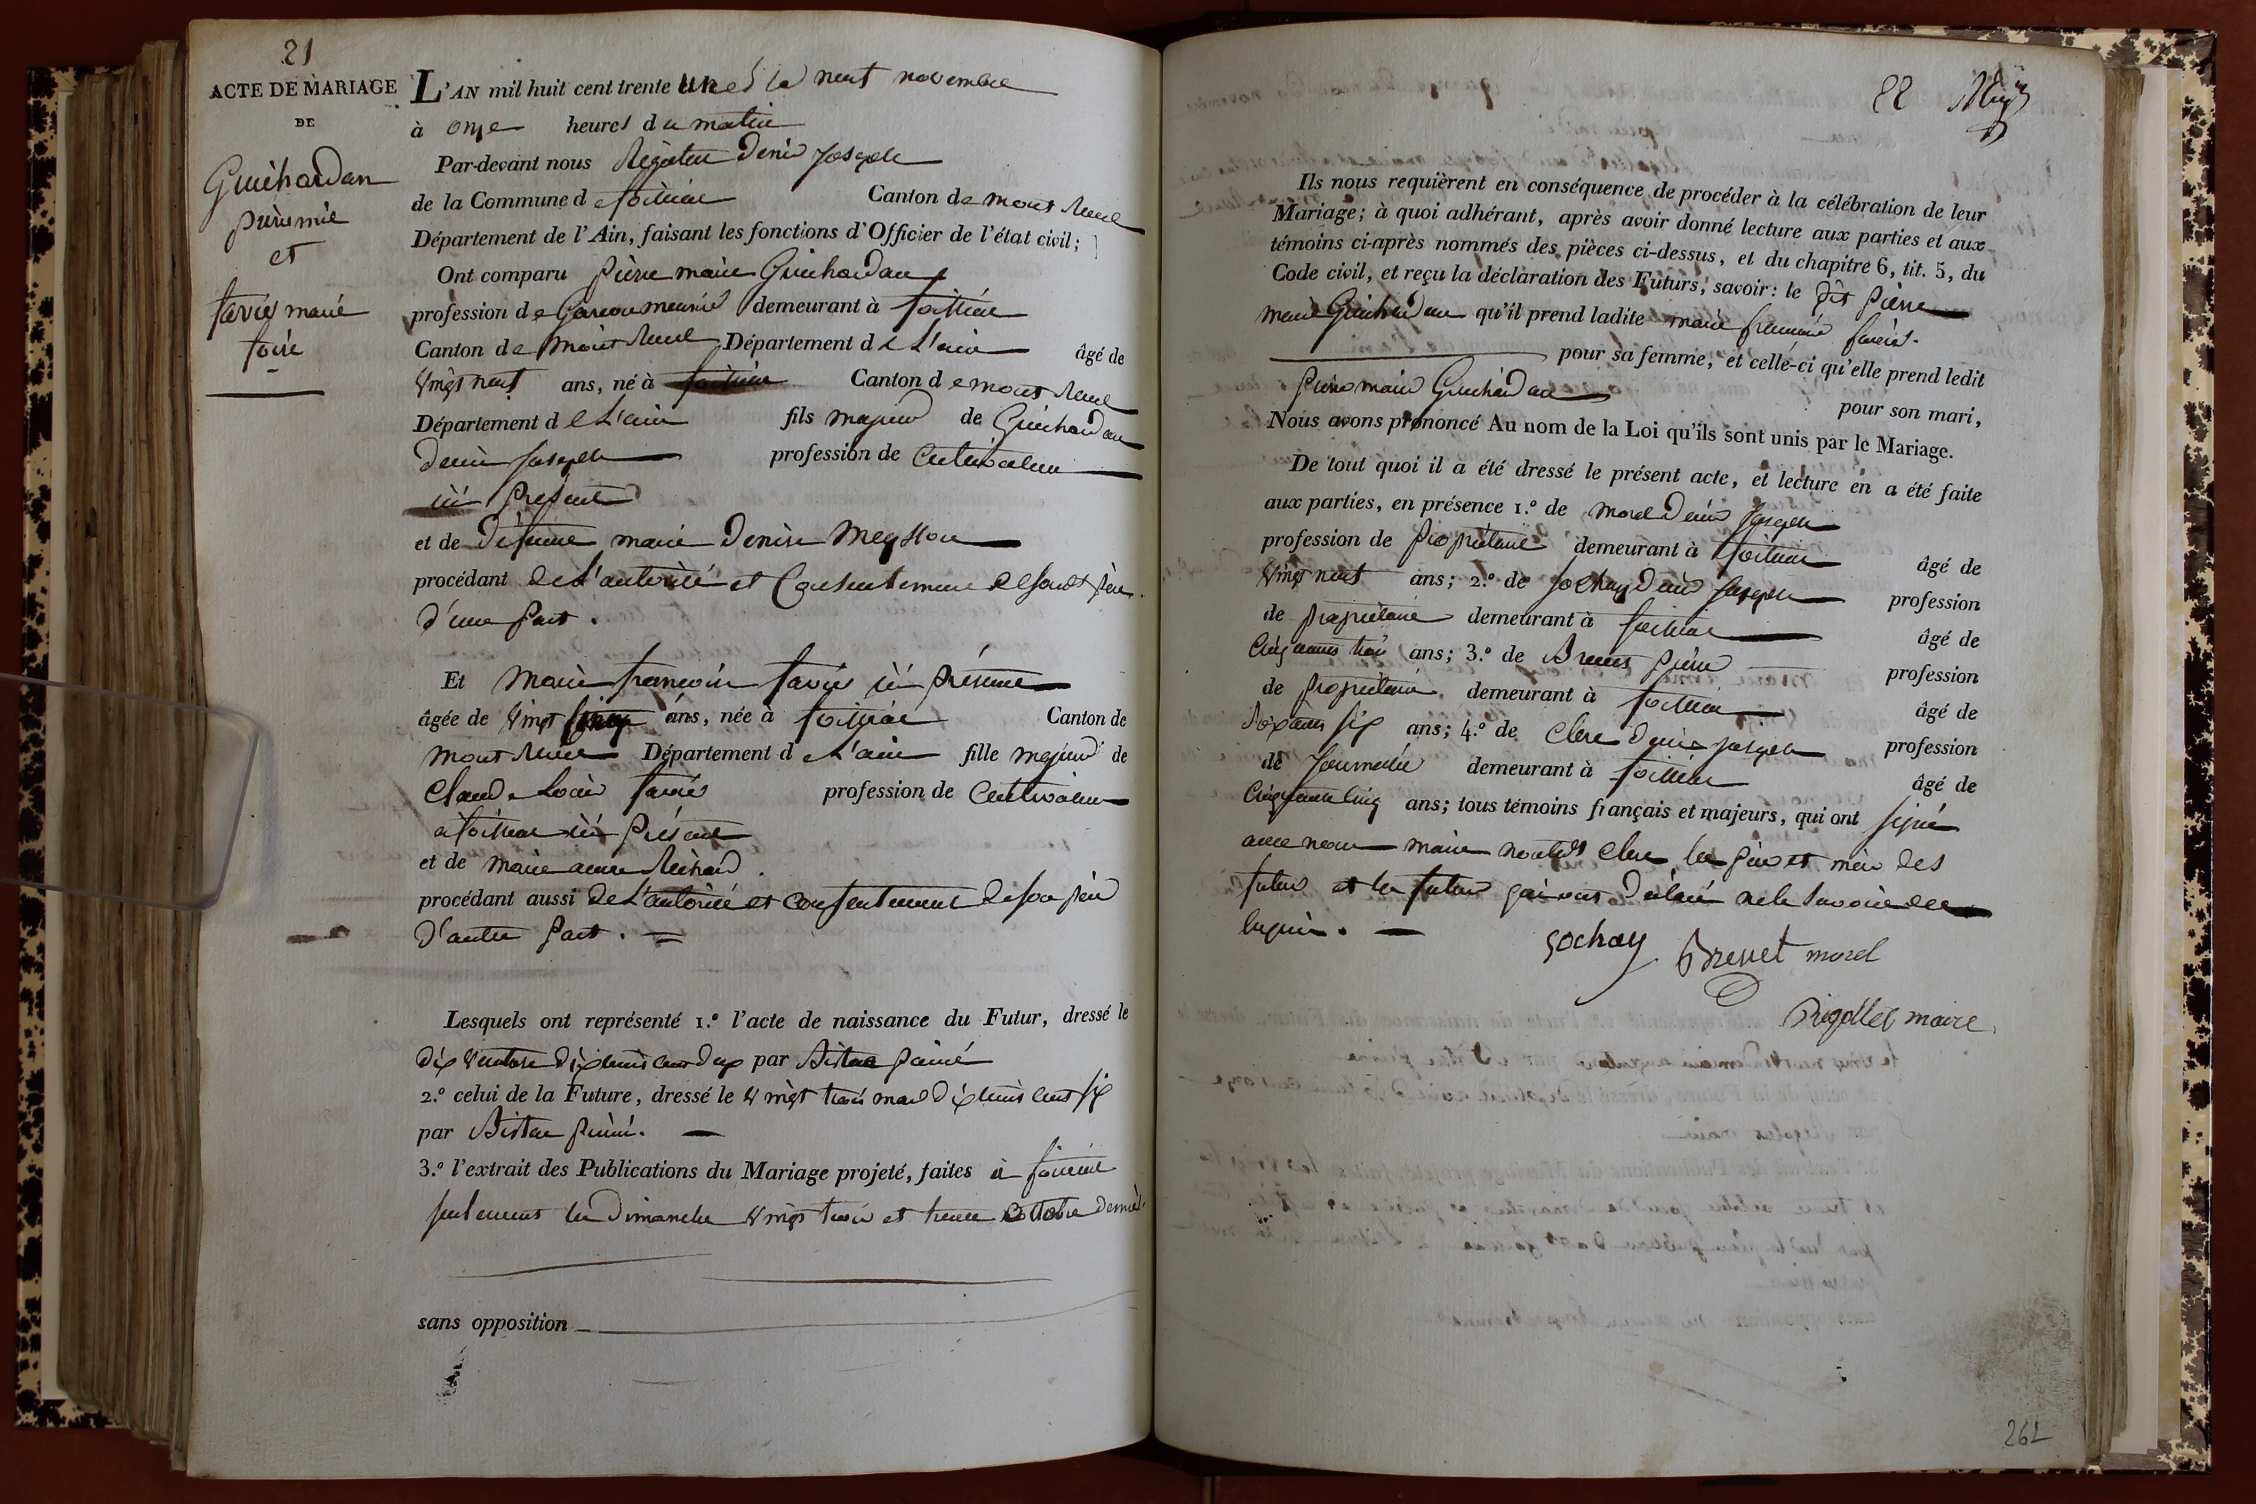 21
ACTE DE MARIAGE
DE
Guichardan
pierre mie
et
favier marie
foire
L'AN mil huit cent trente un et le neuf novembre
à onze heures du matin
Par-devant nous Rigollet Denis Joseph
de la Commune de foissiat Canton de mont Revel
Département de l'Ain, faisant les fonctions d'Officier de l'état civil;
Ont comparu pierre marie Guichardan
profession de Garcon meunier demeurant à foissiat
Canton de mont Revel Département de L'ain âgé de
vingt neuf ans, né à foissiat Canton de mont Revel
Département de L'ain fils majeur de Guichardan
denis Joseph profession de Cultivateur
ici présent
et de défunte marie Denise Meysson
procédant de L'autorité et Consentement de sondt père
d'une part.
Et Marie francoise favier ici présente
âgée de vingt ans, née à foissiat Canton de
mont Revel Département de L'ain fille majeure de
Claude Louis favier profession de Cultivateur
à foissiat ici présent
et de marie anne Richard.
procédant aussi de L'autorité et consentement de son père
d'autre part.
Lesquels ont représenté 1.º l'acte de naissance du Futur, dressé le
dix ventose dix huit cent deux par
2.º celui de la Future, dressé le vingt trois mars dix huit cent six
par
3.º l'extrait des Publications du Mariage projeté, faites à foissiat
seulement les dimanche vingt trois et trente octobre dernier
sans opposition
22
Ils nous requièrent en conséquence de procéder à la célébration de leur
Mariage; à quoi adhérant, après avoir donné lecture aux parties et aux
témoins ci-après nommés des pièces ci-dessus, et du chapitre 6, tit. 5, du
Code civil, et reçu la déclaration des Futurs, savoir: le dit pierre
marie Guichardan qu'il prend ladite marie francoise favier.
pour sa femme, et celle-ci qu'elle prend ledit
pierre marie Guichardan pour son mari,
Nous avons prononcé Au nom de la Loi qu'ils sont unis par le Mariage.
De tout quoi il a été dressé le présent acte, et lecture en a été faite
aux parties, en présence 1.º de morel Denis Joseph
profession de propriétaire demeurant à foissiat âgé de
vingt neuf ans; 2.º de Sochay Denis Joseph profession
de propriétaire demeurant à foissiat âgé de
Cinquante trois ans; 3.º de Brevet pierre profession
de propriétaire demeurant à foissiat âgé de
soixante six ans; 4.º de Clerc Denis Joseph profession
de Journalier demeurant à foissiat âgé de
Cinquante cinq ans; tous témoins français et majeurs, qui ont signé
avec nous maire non ledt Clerc les père et mère des
futurs et les futurs qui ont déclaré ne le savoir de ce
requis.
Sochay Brevet morel
Rigollet maire
262